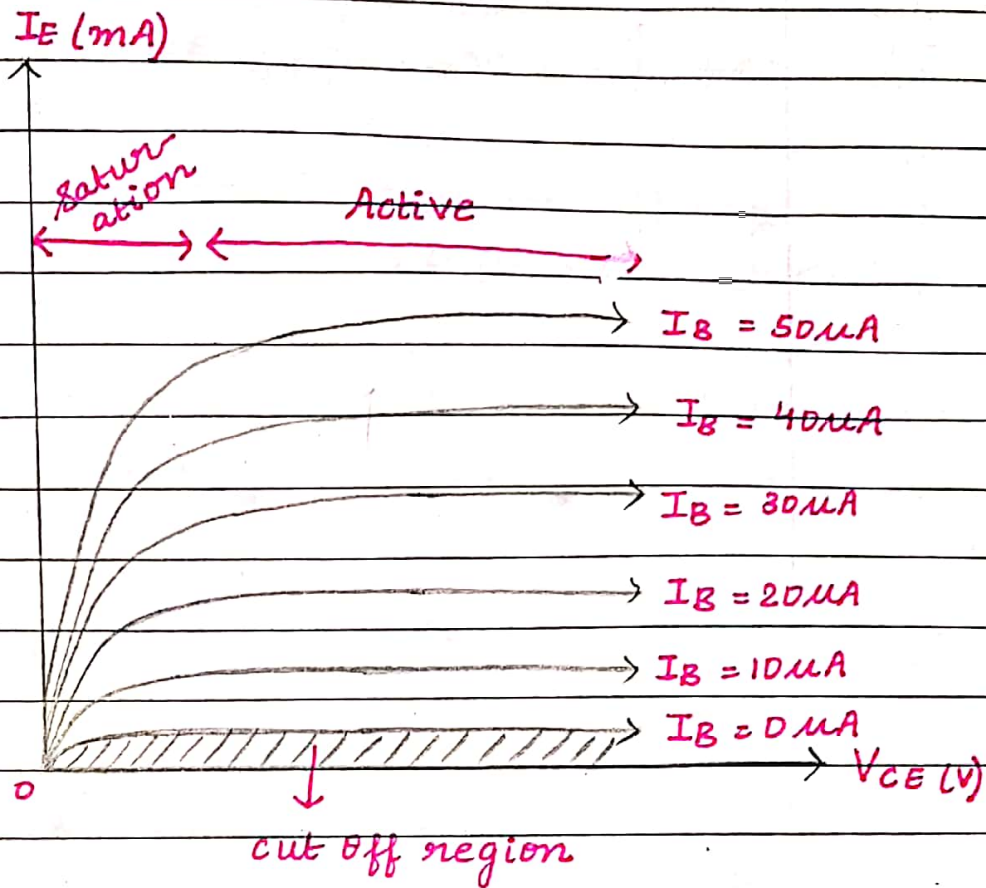 IE (mA)
Satur
ation
Active
IB = 50μA
IB = 40μA
IB = 30μA
IB = 20μA
IB = 10μA
IB = 0μA
0
VCE (V)
cut off region